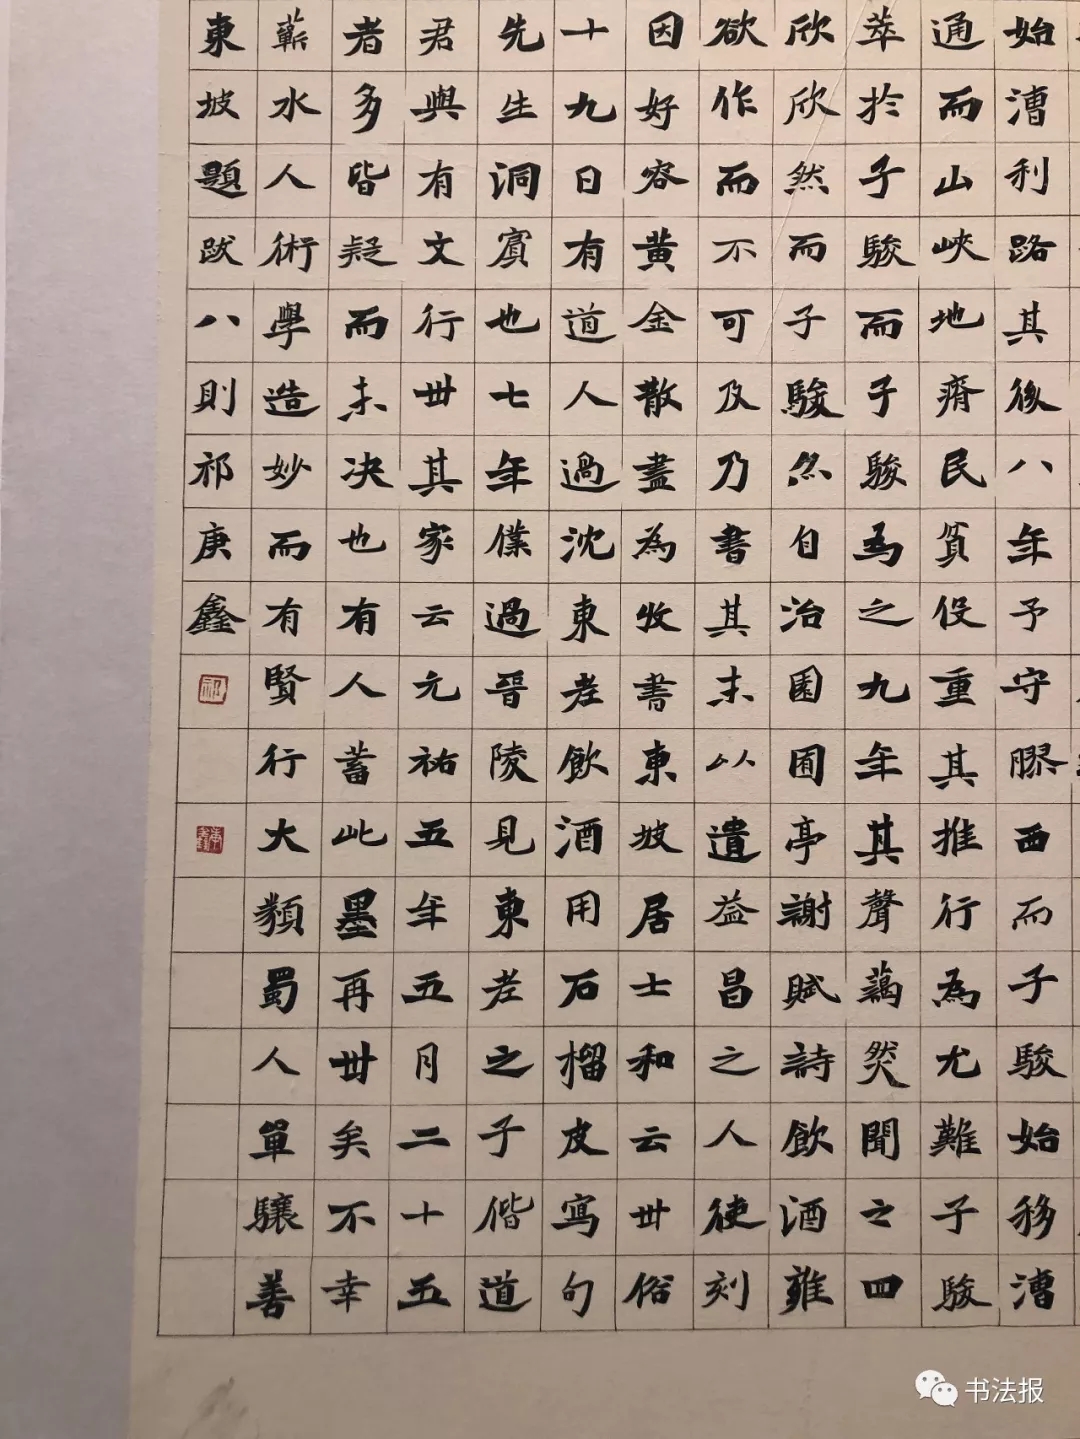 始漕利路其後八年予守膠西而子駿始移漕
通而山峽地瘠民貧役重其推行為尤難子駿
萃於子駿而子駿為之九年其聲藹然聞之四
欣欣然而子駿亦自治園囿亭謝賦詩飲酒雍
欲作而不可及乃書其末以遺益昌之人使刻
因好客黄金散盡為收書東坡居士和云世俗
十九日有道人過沈東老飲酒用石榴皮寫句
先生洞賓也七年僕過晉陵見東老之子偕道
君與有文行世其家云元祐五年五月二十五
者多皆疑而未决也有人蓄此墨再世矣不幸
蘄水人術學造妙而有賢行大類蜀人單驤善
東坡題跋八則祁庚鑫
祁
书法报